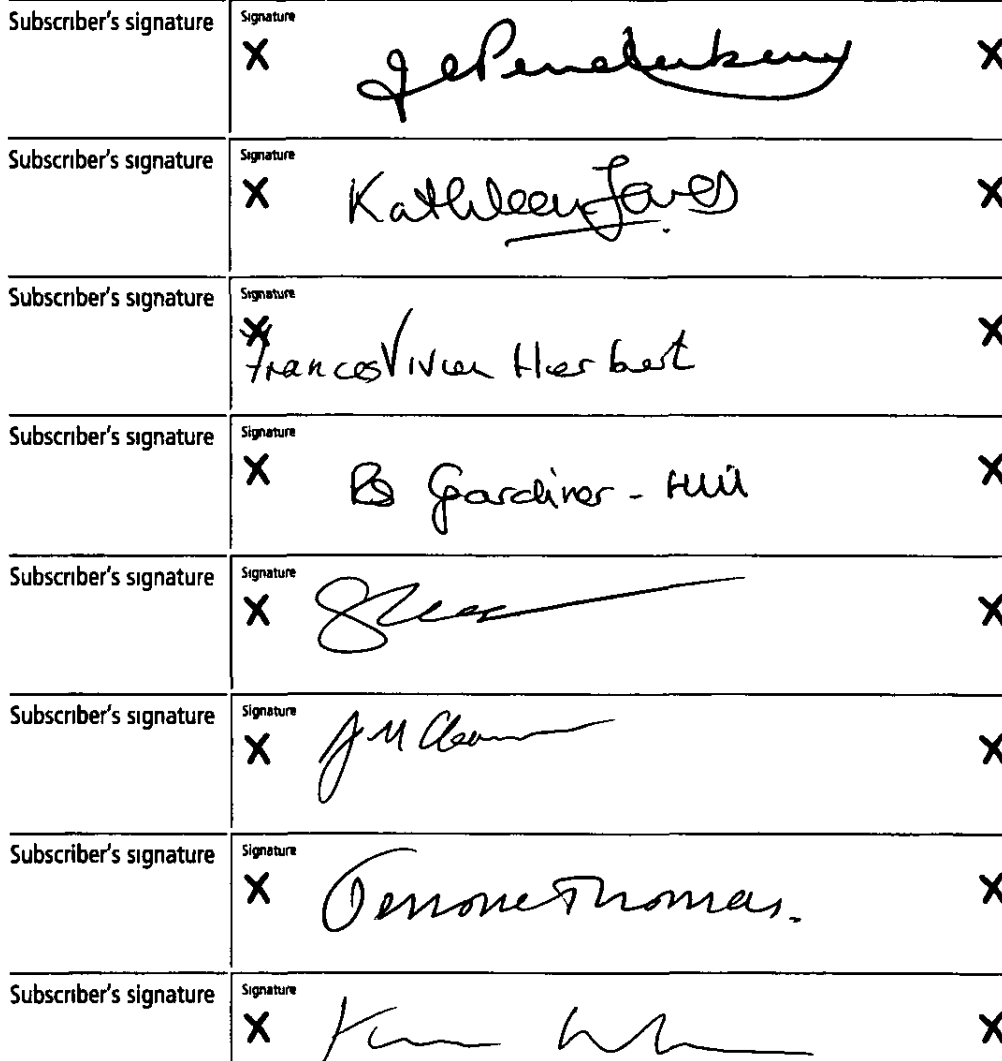 Subscriber's signature
Signature
X X
Subscriber's signature
Signature
X Kathleen Jones X
Subscriber's signature
Signature
X X
Frances Vivien Herbert
Subscriber's signature
Signature
X Gardiner - Hill X
Subscriber's signature
Signature
X X
Subscriber's signature
Signature
X X
Subscriber's signature
Signature
X Thomas. X
Subscriber's signature
Signature
X X